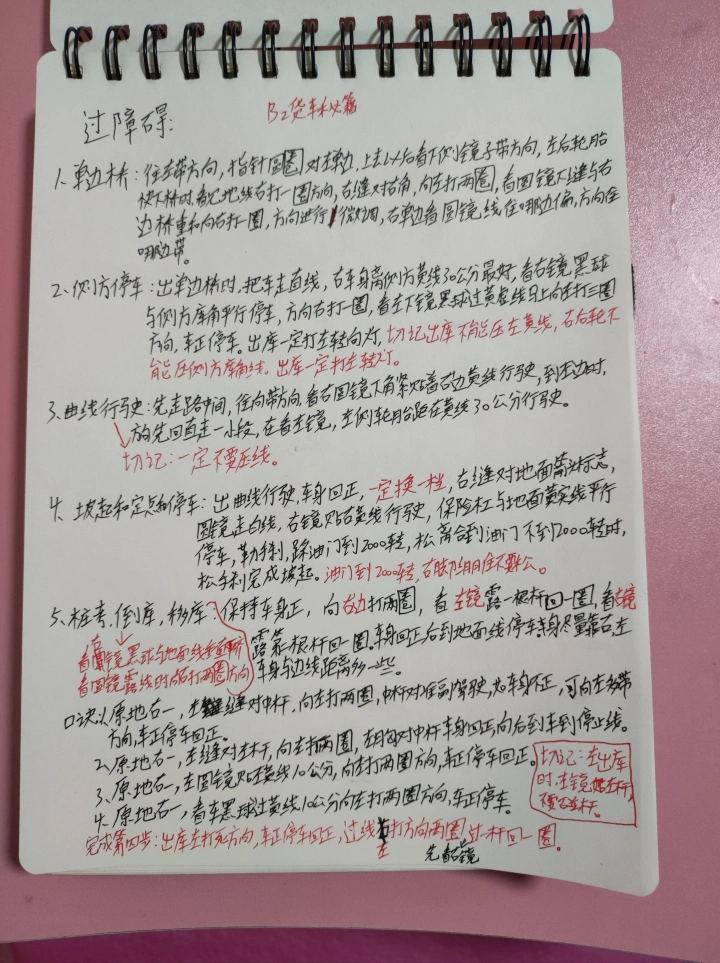 B2货车秘籍
过障碍:
1、单边桥:往左带方向,指针圆圈对左单边,上去以后看下侧镜子带方向,左后轮胎
快下桥时,看地线右打一圈方向,右缝对右角,向左打两圈,看圆镜下缝与右
边桥重和向右打一圈,方向进行微调,右单边看圆镜线往哪边偏,方向往
哪边带。
2、侧方停车:出单边桥时,把车走直线,右车身离侧方黄线30公分最好,看右镜黑球
与侧方库角平行停车,方向右打一圈,看左下镜黑球过黄虚线马上向左打三圈
方向,车正停车。出库一定打左转向灯,切记出库不能压左黄线,右后轮不
能压侧方库角线。出库一定打左转灯。
3、曲线行驶:先走路中间,往向带方向,看右圆镜下角紧贴着右边黄线行驶,到左边时,
方先回直走一小段,在看左镜,左侧轮胎距在黄线30公分行驶。
切记:一定不要压线。
4、坡起和定点停车:出曲线行驶,车身回正,一定换一档,右缝对地面箭头标志,
圆镜走白线,右镜贴右黄线行驶,保险杠与地面黄实线平行
停车,勒手刹,踩油门到2000转,松离合到油门下到2000转时,
松手刹完成坡起。油门到2000转,右脚油门不要松。
5、桩考,倒库,移库:保持车身正,向右边打两圈,看左镜露一根杆回一圈,看右镜
露第一根杆回一圈。车身回正后到地面线停车,车身尽量靠右,左
车身与边线距离多一些。
看圆镜黑球与地面线平
看圆镜露线时向右打两圈方向
口诀1、原地右一,左缝对中杆,向左打两圈,中杆对准副驾驶,芯车身不正,可向左多带
方向,车正停车回正。
2、原地右一,左缝对左杆,向左打两圈,对中杆车身回正,向后到车到停止线。
3、原地右一,左圆镜贴左黄线10公分,向左打两圈方向,车正停车回正。
4、原地右一,看车黑球过黄线10公分向左打两圈方向,车正停车。
切记:左出库
时,左镜左杆,
不要左杆。
完成第四步:出库左打死方向,车正停车回正,过线左打方向两圈,过一杆回一圈。
先看右镜